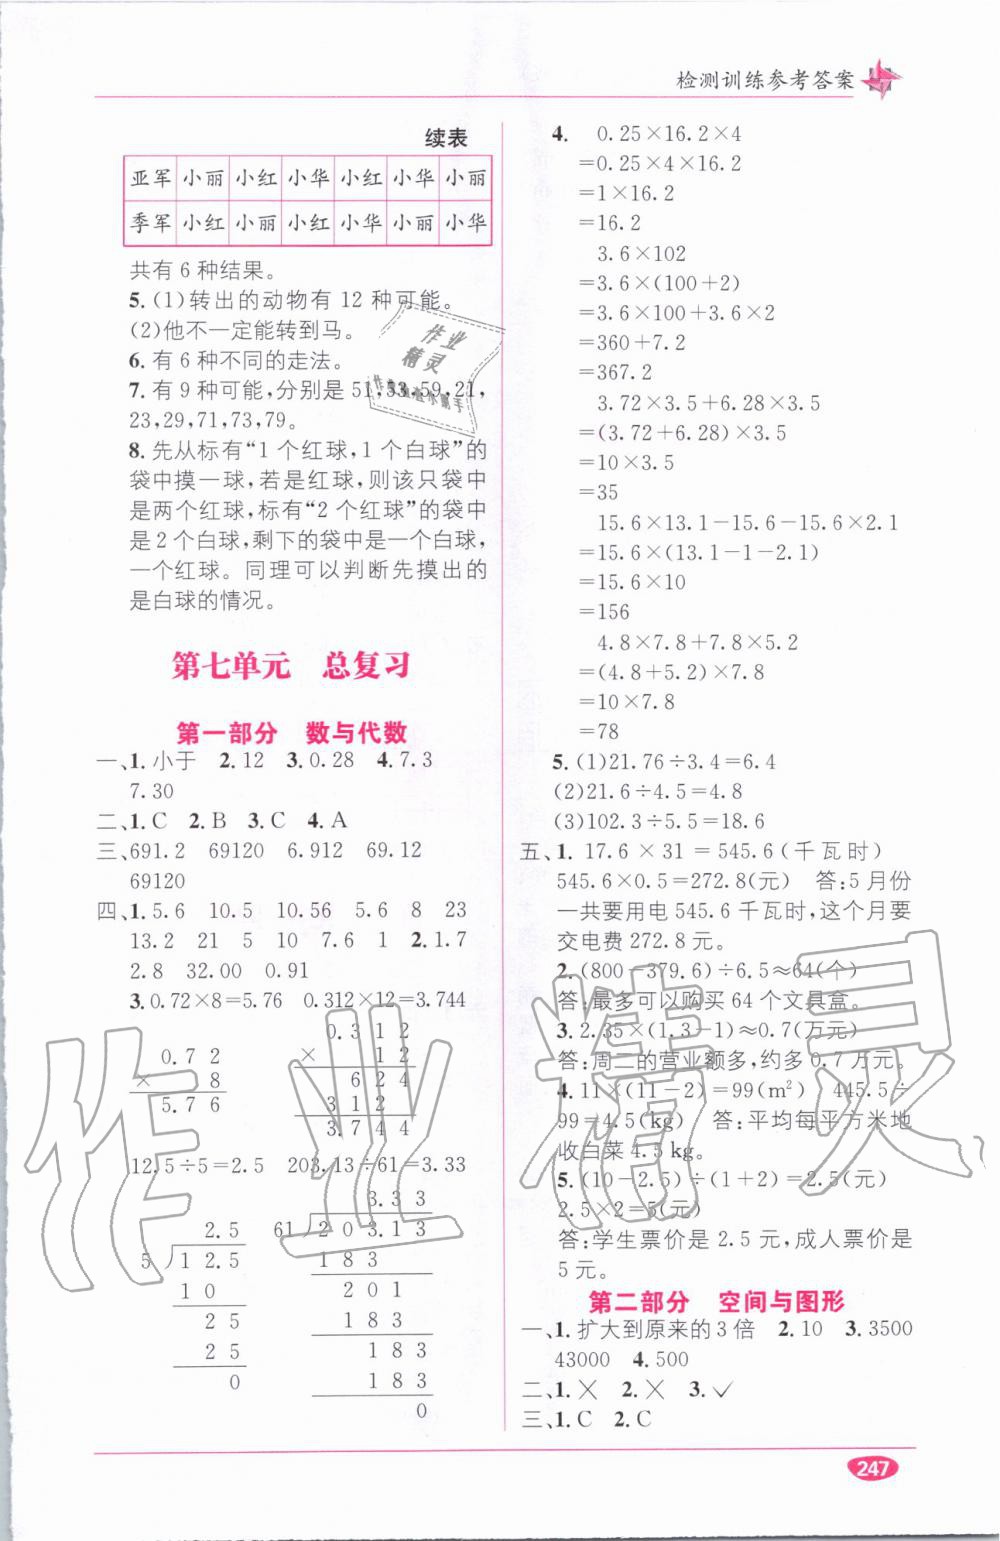 检测训练参考答案
续表
亚军 小丽 小红 小华 小红 小华 小丽
季军 小红 小丽 小红 小华 小丽 小华
共有 6 种结果。
5. (1)转出的动物有 12 种可能。
(2)他不一定能转到马。
6. 有 6 种不同的走法。
7. 有 9 种可能,分别是 51,53,59,21,
23,29,71,73,79。
8. 先从标有“1 个红球,1 个白球”的
袋中摸一球,若是红球,则该只袋中
是两个红球,标有“2 个红球”的袋中
是 2 个白球,剩下的袋中是一个白球,
一个红球。同理可以判断先摸出的
是白球的情况。
第七单元 总复习
第一部分 数与代数
一、1. 小于 2. 12 3. 0.28 4. 7.3
7.30
二、1. C 2. B 3. C 4. A
三、691.2 69120 6.912 69.12
69120
四、1. 5.6 10.5 10.56 5.6 8 23
13.2 21 5 10 7.6 1 2. 1.7
2.8 32.00 0.91
3. 0.72×8=5.76 0.312×12=3.744
0.72
× 8
5.76
0.312
× 12
624
312
3.744
12.5÷5=2.5 203.13÷61=3.33
2.5
5 12.5
10
25
25
0
3.33
61 203.13
183
201
183
183
183
0
4. 0.25×16.2×4
=0.25×4×16.2
=1×16.2
=16.2
3.6×102
=3.6×(100+2)
=3.6×100+3.6×2
=360+7.2
=367.2
3.72×3.5+6.28×3.5
=(3.72+6.28)×3.5
=10×3.5
=35
15.6×13.1-15.6-15.6×2.1
=15.6×(13.1-1-2.1)
=15.6×10
=156
4.8×7.8+7.8×5.2
=(4.8+5.2)×7.8
=10×7.8
=78
5. (1)21.76÷3.4=6.4
(2)21.6÷4.5=4.8
(3)102.3÷5.5=18.6
五、1. 17.6×31=545.6(千瓦时)
545.6×0.5=272.8(元) 答:5 月份
一共要用电 545.6 千瓦时,这个月要
交电费 272.8 元。
2. (800-379.6)÷6.5≈64(个)
答:最多可以购买 64 个文具盒。
3. 2.35×(1.3-1)≈0.7(万元)
答:周二的营业额多,约多 0.7 万元。
4. 11×(11-2)=99(m²) 445.5÷
99=4.5(kg) 答:平均每平方米地
收白菜 4.5 kg。
5. (10-2.5)÷(1+2)=2.5(元)
2.5×2=5(元)
答:学生票价是 2.5 元,成人票价是
5 元。
第二部分 空间与图形
一、1. 扩大到原来的 3 倍 2. 10 3. 3500
43000 4. 500
二、1. × 2. × 3. ✓
三、1. C 2. C
247
作业
精灵
作业精灵